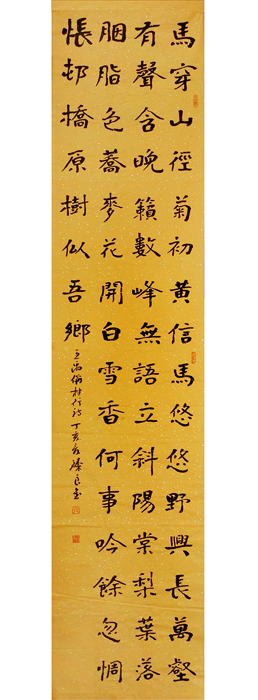 馬穿山徑菊初黃信馬悠悠野興長萬壑
有聲含晚籟數峰無語立斜陽棠梨葉落
胭脂色蕎麥花開白雪香何事吟餘忽惆
悵邨橋原樹似吾鄉
王禹偁村行詩 丁亥